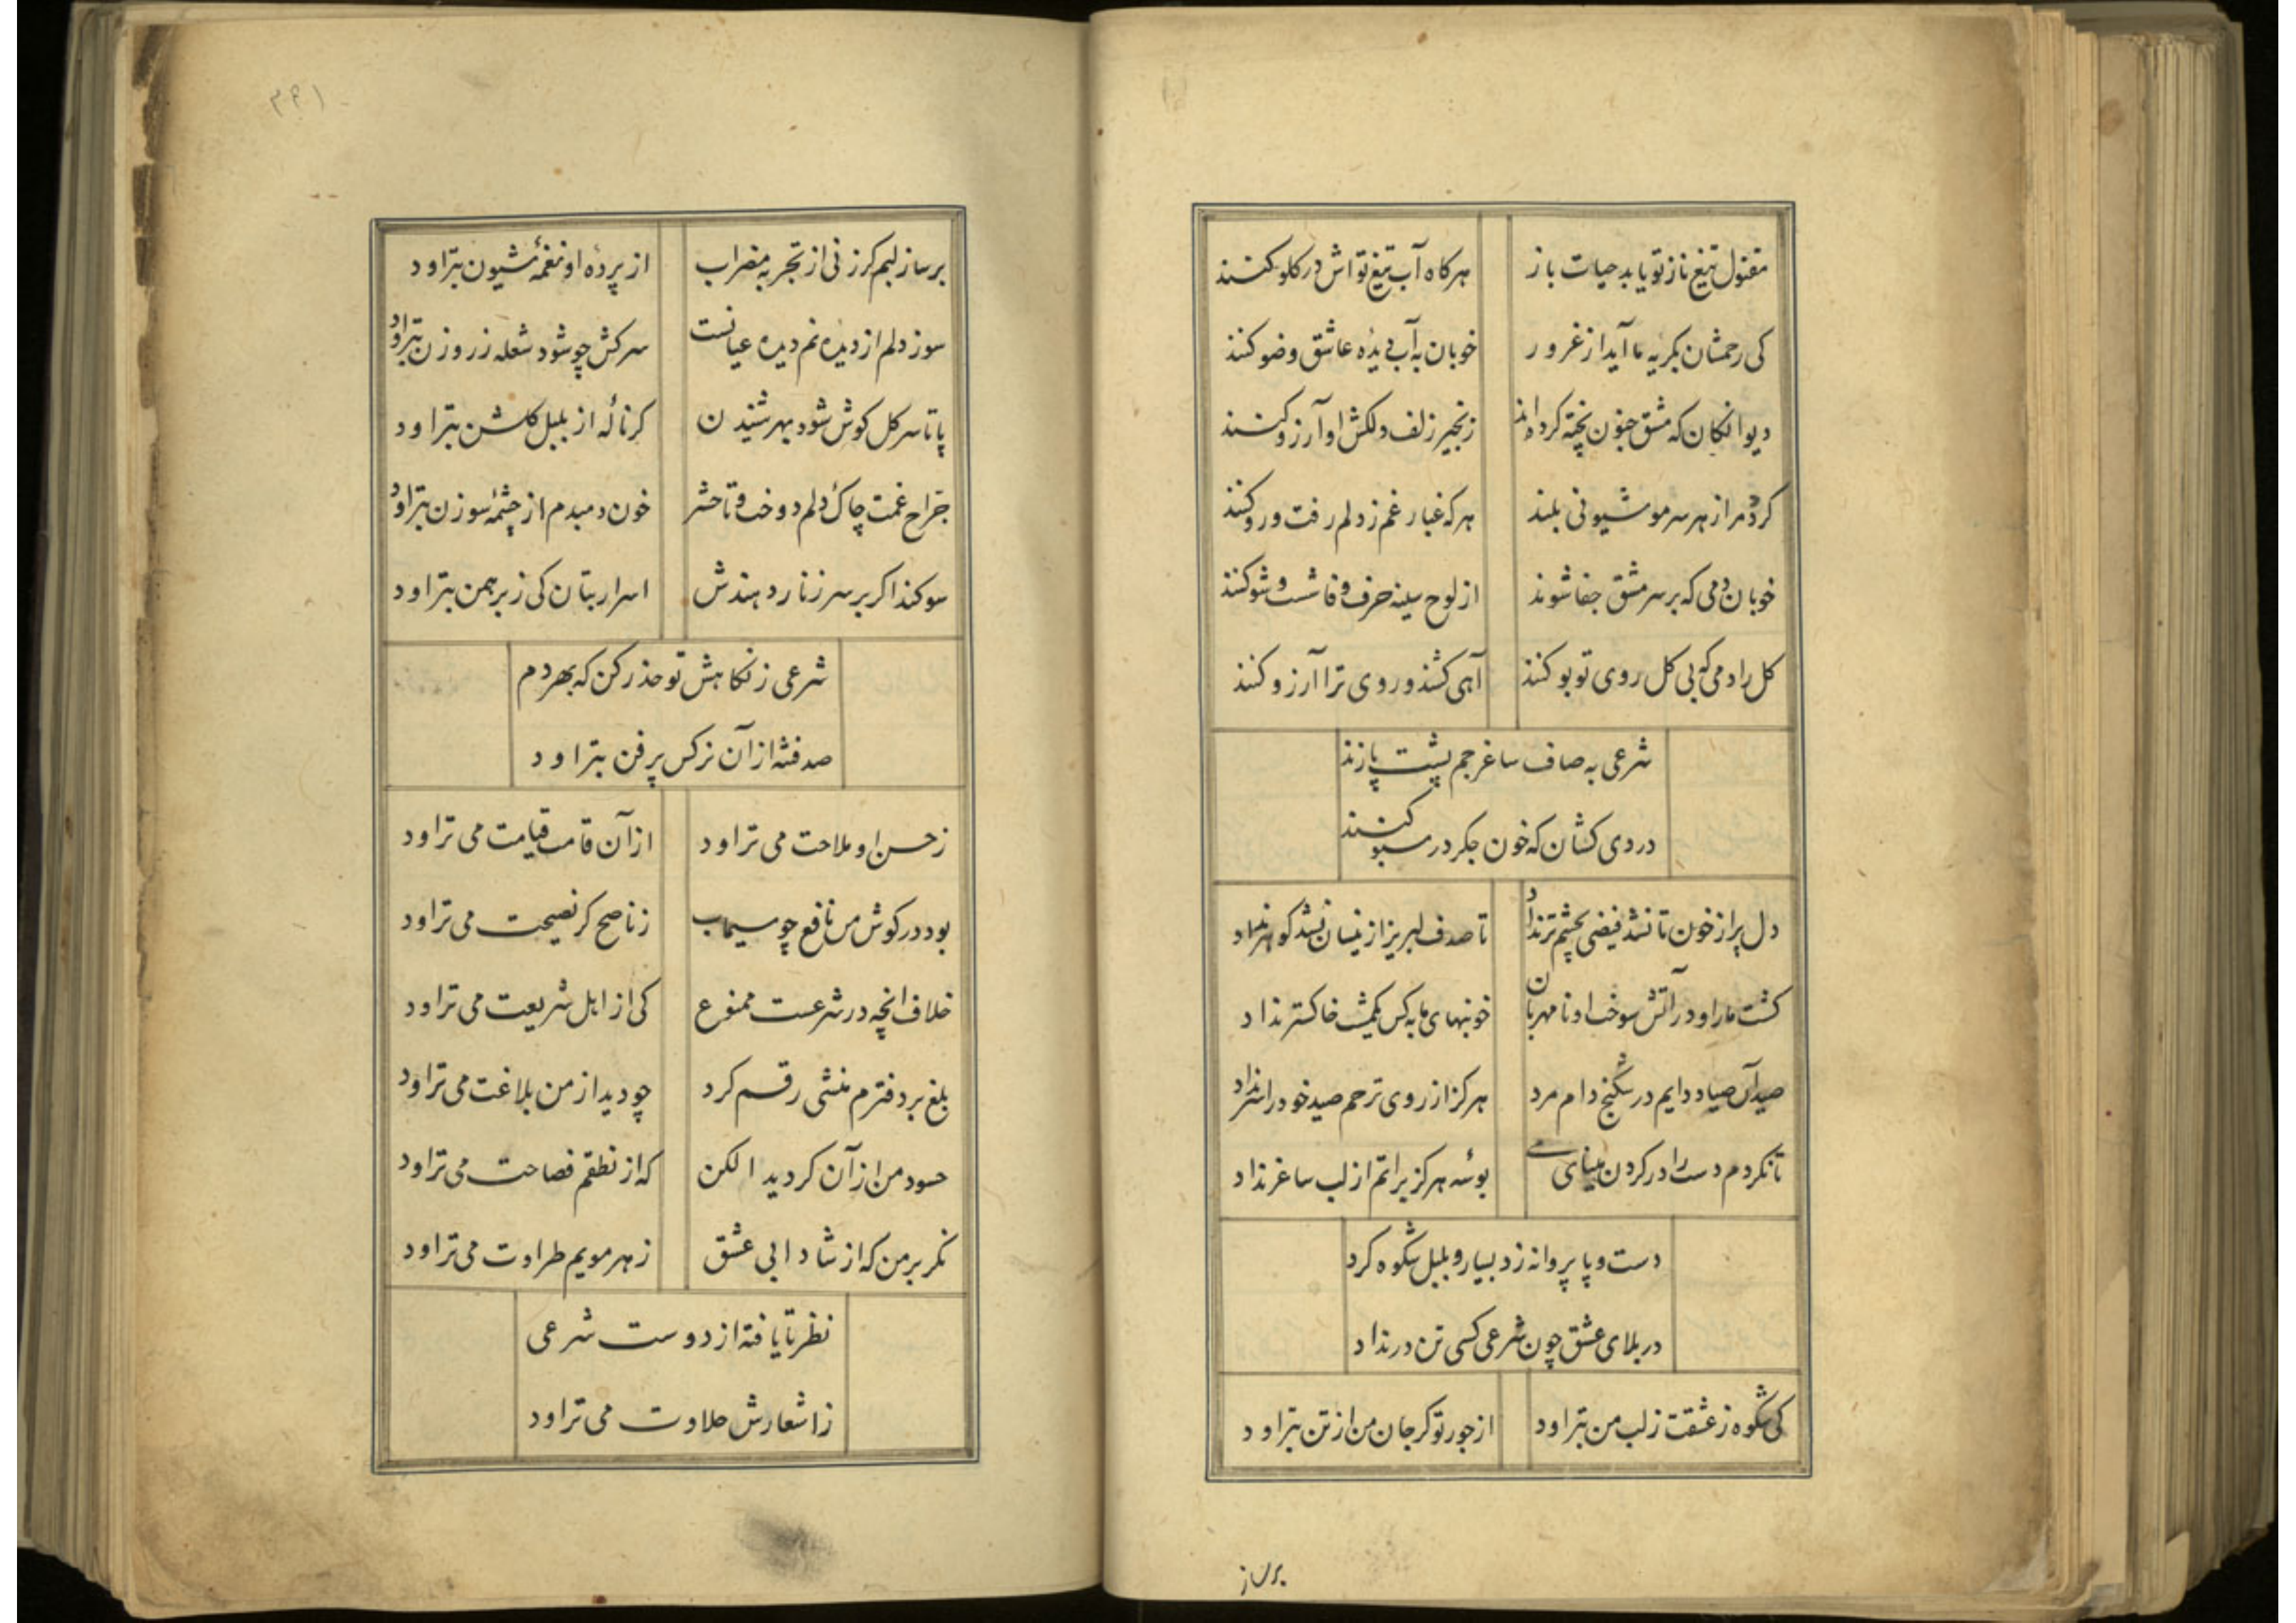 مقتول تیغ ناز تو یابد حیات باز
هرکاه آب تیغ تواش در کلو کنند
کی رحمشان بکریه ما آید از غرور
خوبان به آب دیده عاشق وضو کنند
دیوانکان که مشق جنون پخته کرده اند
زنجیر زلف دلکش او آرزو کنند
کردم از هر سر مو شیونی بلند
هر که غبار غم ز دلم رفت و رو کنند
خوبان دمی که بر سر مشق جفا شوند
از لوح سینه حرف وفا شست و شو کنند
کل را دمی که بی کل روی تو بو کنند
آهی کشند و روی ترا آرزو کنند
شرعی به صاف ساغر جم پشت پا زند
دردی کشان که خون جکر در سبو کنند
دل پر از خون تا نشد فیضی بچشم تر نداد
تا صدف لبریز از نیسان نشد کوهر نداد
کشت ما را و در آتش سوخت او نامهربان
خونبهای ما به کس یکمشت خاکستر نداد
صید آن صیاد دایم در شکنج دام مرد
هرکز از روی ترحم صید خود را سر نداد
تا نکردم دست را در کردن مینای می
بوسه هرکز براتم از لب ساغر نداد
دست و پا پروانه زد بسیار و بلبل شکوه کرد
در بلای عشق چون شرعی کسی تن در نداد
کی شکوه ز عشقت ز لب من بتراود
از جور تو کر جان من از تن بتراود
بر ساز
۳۴۱
بر ساز لبم کر زنی از تجربه مضراب
از پرده او نغمهٔ شیون بتراود
سوز دلم از دیده نم دیده عیانست
سرکش چو شود شعله ز روزن بتراود
پا تا سر کل کوش شود بهر شنیدن
کر ناله از بلبل کلشن بتراود
جراح غمت چاک دلم دوخت و تا حشر
خون دمبدم از چشمهٔ سوزن بتراود
سوکند اکر بر سر زنار دهندش
اسرار بتان کی ز برهمن بتراود
شرعی ز نکاهش تو حذر کن که بهر دم
صد فتنه از آن نرکس پر فن بتراود
ز حسن او ملاحت می تراود
از آن قامت قیامت می تراود
بود در کوش من نافع چو سیماب
ز ناصح کر نصیحت می تراود
خلاف انچه در شرعست ممنوع
کی از اهل شریعت می تراود
بلغ بر دفترم منشی رقم کرد
چو دید از من بلاغت می تراود
حسود من از آن کردید الکن
که از نطقم فصاحت می تراود
نکر بر من که از شادابی عشق
ز هر مویم طراوت می تراود
نظر تا یافته از دوست شرعی
ز اشعارش حلاوت می تراود